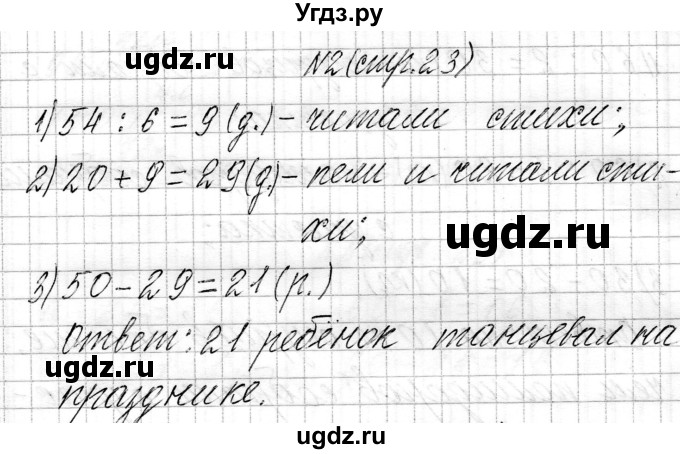 Угдз.ру
ugdz.ru
№2(стр.23)
1) 54 : 6 = 9 (д.) – читали стихи;
2) 20 + 9 = 29 (д.) – пели и читали сти-
хи;
ugdz.ru
3) 50 – 29 = 21 (р.)
Ответ: 21 ребёнок танцевал на
ugdz.ru
ugdz.ru
празднике.
ugdz.ru